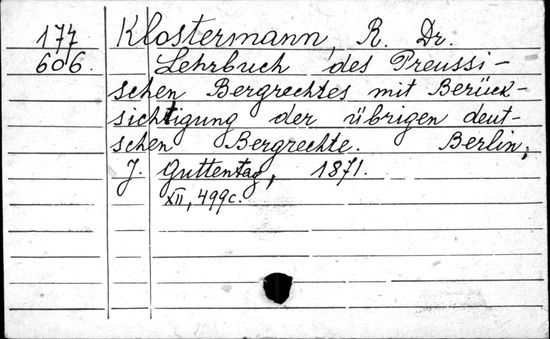 177 Klostermann, R. Dr.
606. Lehrbuch des Preussi-
schen Bergrechtes mit Berück-
sichtigung der übrigen deut-
schen Bergrechte. Berlin,
J. Guttentag, 1871.
XII, 499c.